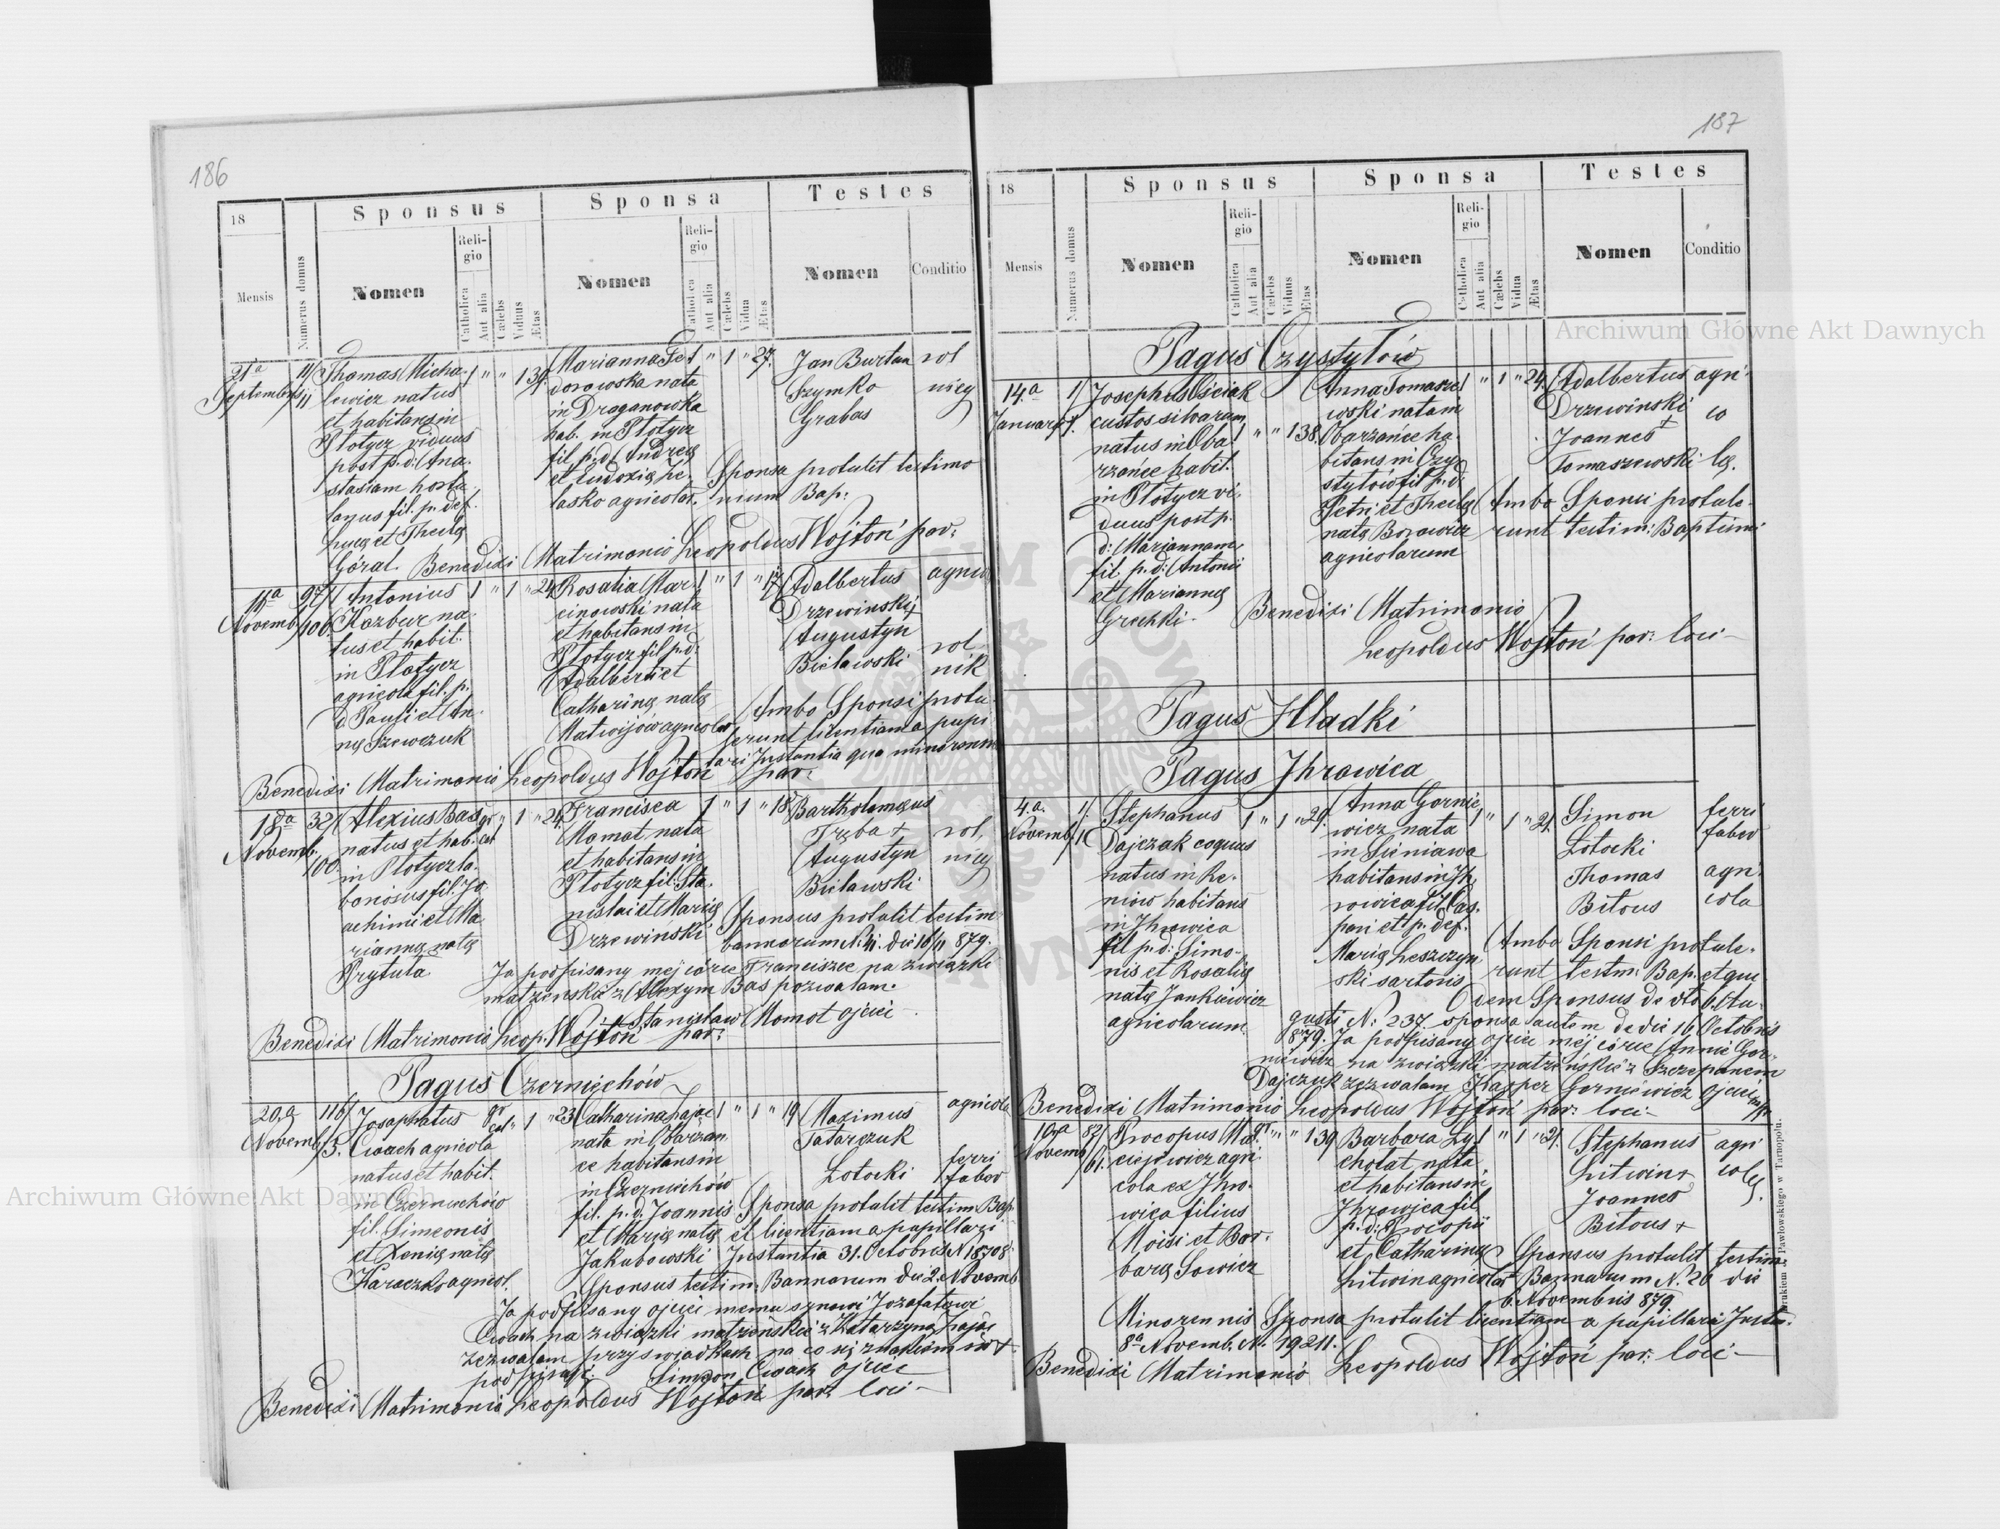 186
18
Sponsus
Sponsa
Testes
Mensis
Numerus domus
Nomen
Religio
Catholica
Aut alia
Cælebs
Viduus
Ætas
Nomen
Religio
Catholica
Aut alia
Cælebs
Vidua
Ætas
Nomen
Conditio
21a
Septembris
11
Thomas Micha-
lewicz natus
et habitans in
Płotycz viduus
post p. d. Ana-
stasiam
fil. p. def.
et Theclę
Góral.
1 " " 1 39
Marianna Fe-
dorowska nata
in Draganowka
hab. in Płotycz
fil. p. d. Andreę
et Eudoxię
agricolar.
1 " 1 " 27.
Jan Burtan
Szymko
Grabas
rol
nicy
Sponsa protulit testimo
nium Bap:
Benedixi Matrimonio Leopoldus Wojtoń par:
11a
Novemb.
97/
106.
Antonius
Kozbur na-
tus et habit.
in Płotycz
agricola fil. p.
d. Pauli et An-
nę Szewczuk
1 " 1 " 24
Rosalia Mar-
cinowski nata
et habitans in
Płotycz fil. p. d.
Adalberti et
Catharinę natę
Matwijów agricolar
1 " 1 " 17
Adalbertus
Drzewinski +
Augustyn
Bielawski
agrico
rol
nik
Ambo Sponsi protu
lerunt licentiam a pupi
lari Justantia qua minorenn
Benedixi Matrimonio Leopoldus Wojtoń par:
18a
Novemb.
32/
100.
Alexius Bas
natus et hab.
in Płotycz la-
boriosus fil. Jo-
achimi et Ma-
riannę natę
Prytuła
gr cat
" 1 " 24.
Francisca
Momat nata
et habitans in
Płotycz fil: Sta-
nislai et Marię
Drzewinski
1 " 1 " 18
Bartholomęus
Trzba +
Augustyn
Bielawski
rol.
nicy
Sponsus protulit testim
bannorum N. 11. die 16/11 879.
Ja podpisany mej córce Franciszce na związki
matżenskie z Alexym Bas pozwalam.
+ Stanisław Momot ojciec
Benedixi Matrimonio Leop. Wojtoń par:
Pagus Czerniechów
20.a
Novemb.
116/
3.
Josaphatus
Cwach agricola
natus et habit.
in Czerniechów
fil. Simeonis
et Xenię natę
Karaczko agricol.
gr cat " 1 " 23
Catharina Zając
nata in Obarzan
ce habitans in
in Czerniechów
fil. p. d. Joannis
et Marię natę
Jakubowski
1 " 1 " 19
Maximus
Tatarczuk
Lotocki
agricola
ferri
faber
Sponsa protulit testim. Bap.
et licentiam a pupillari
Justantia 31. Octobris N 18708.
Sponsus testim. Bannorum die 2. Novemb
Ja podpisany ojciec memu synowi Jozafatowi
Cwach na związki matżeńskie z Katarzyną Zając
zezwalam przy swiadkach na co się znakiem św +
podpisuję. Simeon Cwach ojciec
Benedixi Matrimonio Leopoldus Wojtoń par. loci
187
18
Sponsus
Sponsa
Testes
Mensis
Numerus domus
Nomen
Religio
Catholica
Aut alia
Cælebs
Viduus
Ætas
Nomen
Religio
Catholica
Aut alia
Cælebs
Vidua
Ætas
Nomen
Conditio
Pagus Czystyłów
14a
Januarii
1/
Josephus
custos silvarum
natus in Oba-
rzańce habit.
in Płotycz vi-
duus post p.
d: Mariannam
fil. p. d: Antonii
et Mariannę
1 " " 1 38.
Anna Tomasze-
wski nata in
Obarzańce ha-
bitans in Czy-
styłów fil. p. d.
Petri et Theclę
natę Borowicz
agricolarum
1 " 1 " 24.
Adalbertus
Drzewinski
+
Joannes
Tomaszewski
agri-
co
lę.
Ambo Sponsi protule-
runt testim: Baptismi
Benedixi Matrimonio
Leopoldus Wojtoń par: loci
Pagus Hladki
Pagus Jhrowica
4a.
Novemb.
1./
Stephanus
Dajczak coquus
natus in Re-
niów habitans
in Jhrowica
fil. p. d: Simo-
nis et Rosalię
natę Jankiewicz
agricolarum
1 " 1 " 29.
Anna Gornie-
wicz nata
in Sieniawa
habitans in Jh-
rowica fil. Cas-
pari et p. def.
Marię Leszczyn-
ski sartoris
1 " 1 " 21.
Simon
Lotocki
Thomas
Bitous
ferri
faber
agri-
cola
Ambo Sponsi protule-
runt testm. Bap. et qui-
dem Sponsus de dto 6. Au-
gusti N. 237 sponsa autem de die 16 Octobris
879. Ja podpisany ojciec mej córce Annie Gor-
niewicz na związki matżeńskie z Szczepanem
Dajczuk zezwalam Kasper Gorniewicz ojciec
Benedixi Matrimonio Leopoldus Wojtoń par: loci
10a
Novemb
82/
61.
Procopus Ma-
ciejowicz agri-
cola ex Jhro-
wica filius
Moisi et Bar-
barę Sowicz
gr " " 1 39
Barbara Ly-
chotat nata
et habitans in
Jhrowica fil
p. d: Procopii
et Catharinę
Litwin agricolar
1 " 1 " 21.
Stephanus
Litwin +
Joannes
Bitous +
agri
colę.
Sponsus protulit testim.
Bannorum N. 26 die
6. Novembris 879
Minorennis Sponsa protulit licentiam a pupillari Justa.
8a Novemb. N. 19211.
Benedixi Matrimonio Leopoldus Wojtoń par: loci
Drukiem Pawłowskiego w Tarnopolu.
Archiwum Główne Akt Dawnych
Archiwum Główne Akt Dawnych